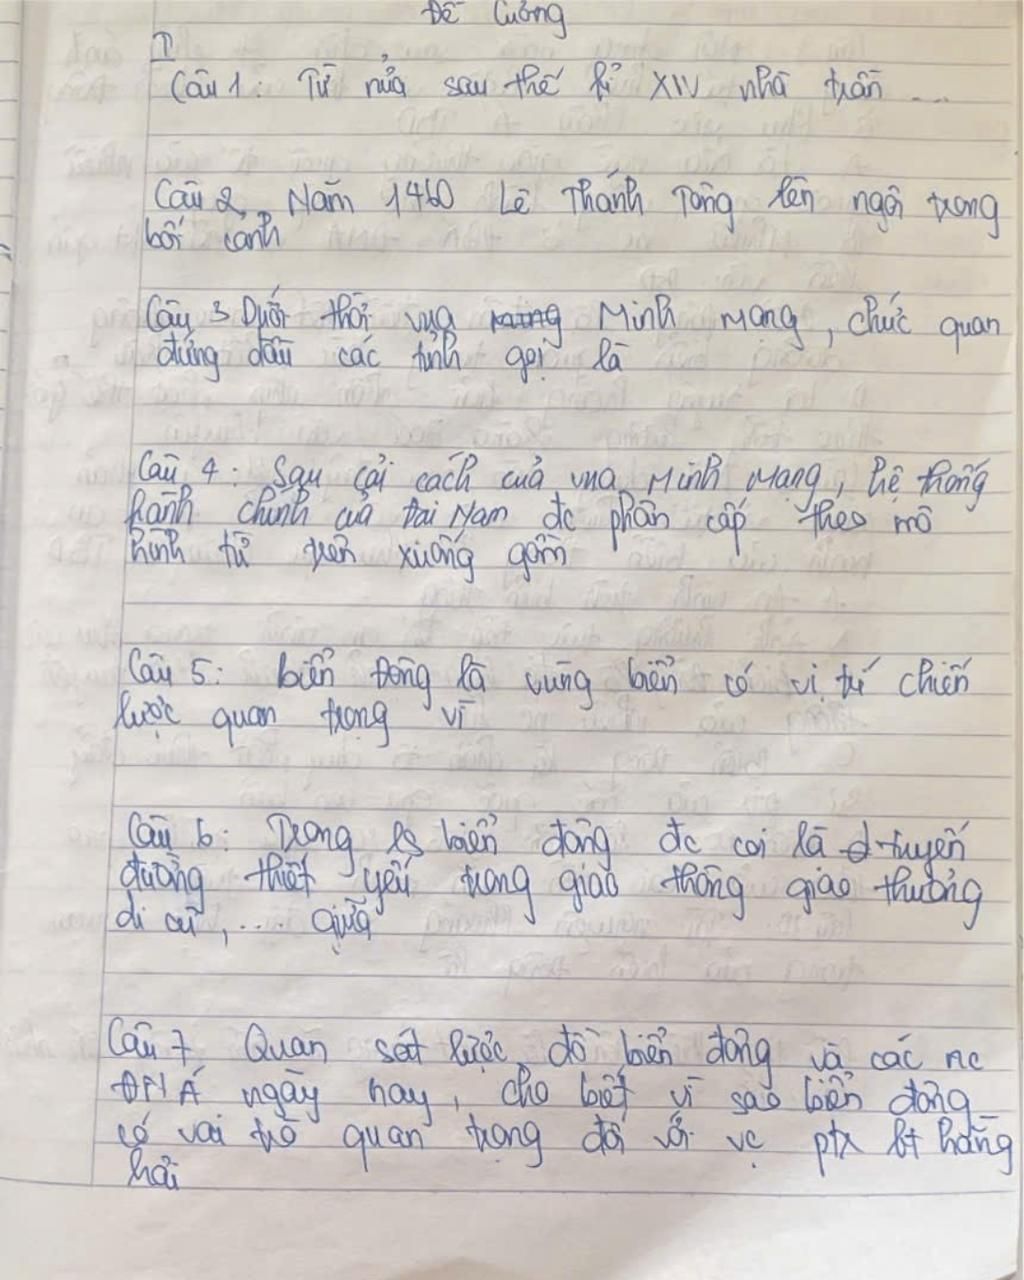 Đề Cương
I
Câu 1: Từ nửa sau thế kỉ XIV nhà trần ...
Câu 2, Năm 1460 Lê Thánh Tông lên ngôi trong
bối cảnh
Câu 3 Dưới thời vua Minh Mạng, chức quan
đứng đầu các tỉnh gọi là
Câu 4: Sau cải cách của vua Minh Mạng, hệ thống
hành chính của Đại Nam đc phân cấp theo mô
hình từ trên xuống gồm
Câu 5: biển Đông là vùng biển có vị trí chiến
lược quan trọng vì
Câu 6: Trong ls biển đông đc coi là tuyến
đường thiết yếu trong giao thông giao thương
di cư, ... giữa
Câu 7 Quan sát lược đồ biển đông và các nc
ĐNÁ ngày nay, cho biết vì sao biển đông
có vai trò quan trọng đối với vc ptr kt hàng
hải